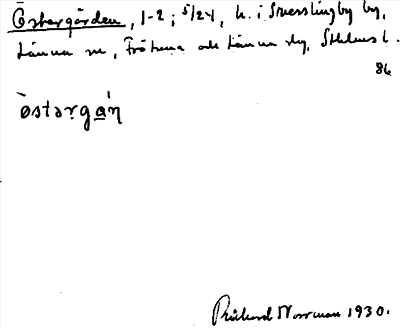 Östergården, 1-2; 5/24, h. i Sverslingby by,
Länna sn, Frötuna och Länna skg, Sthlms l.
86
östərgạ́ṇ
Rickard Norrman 1930.